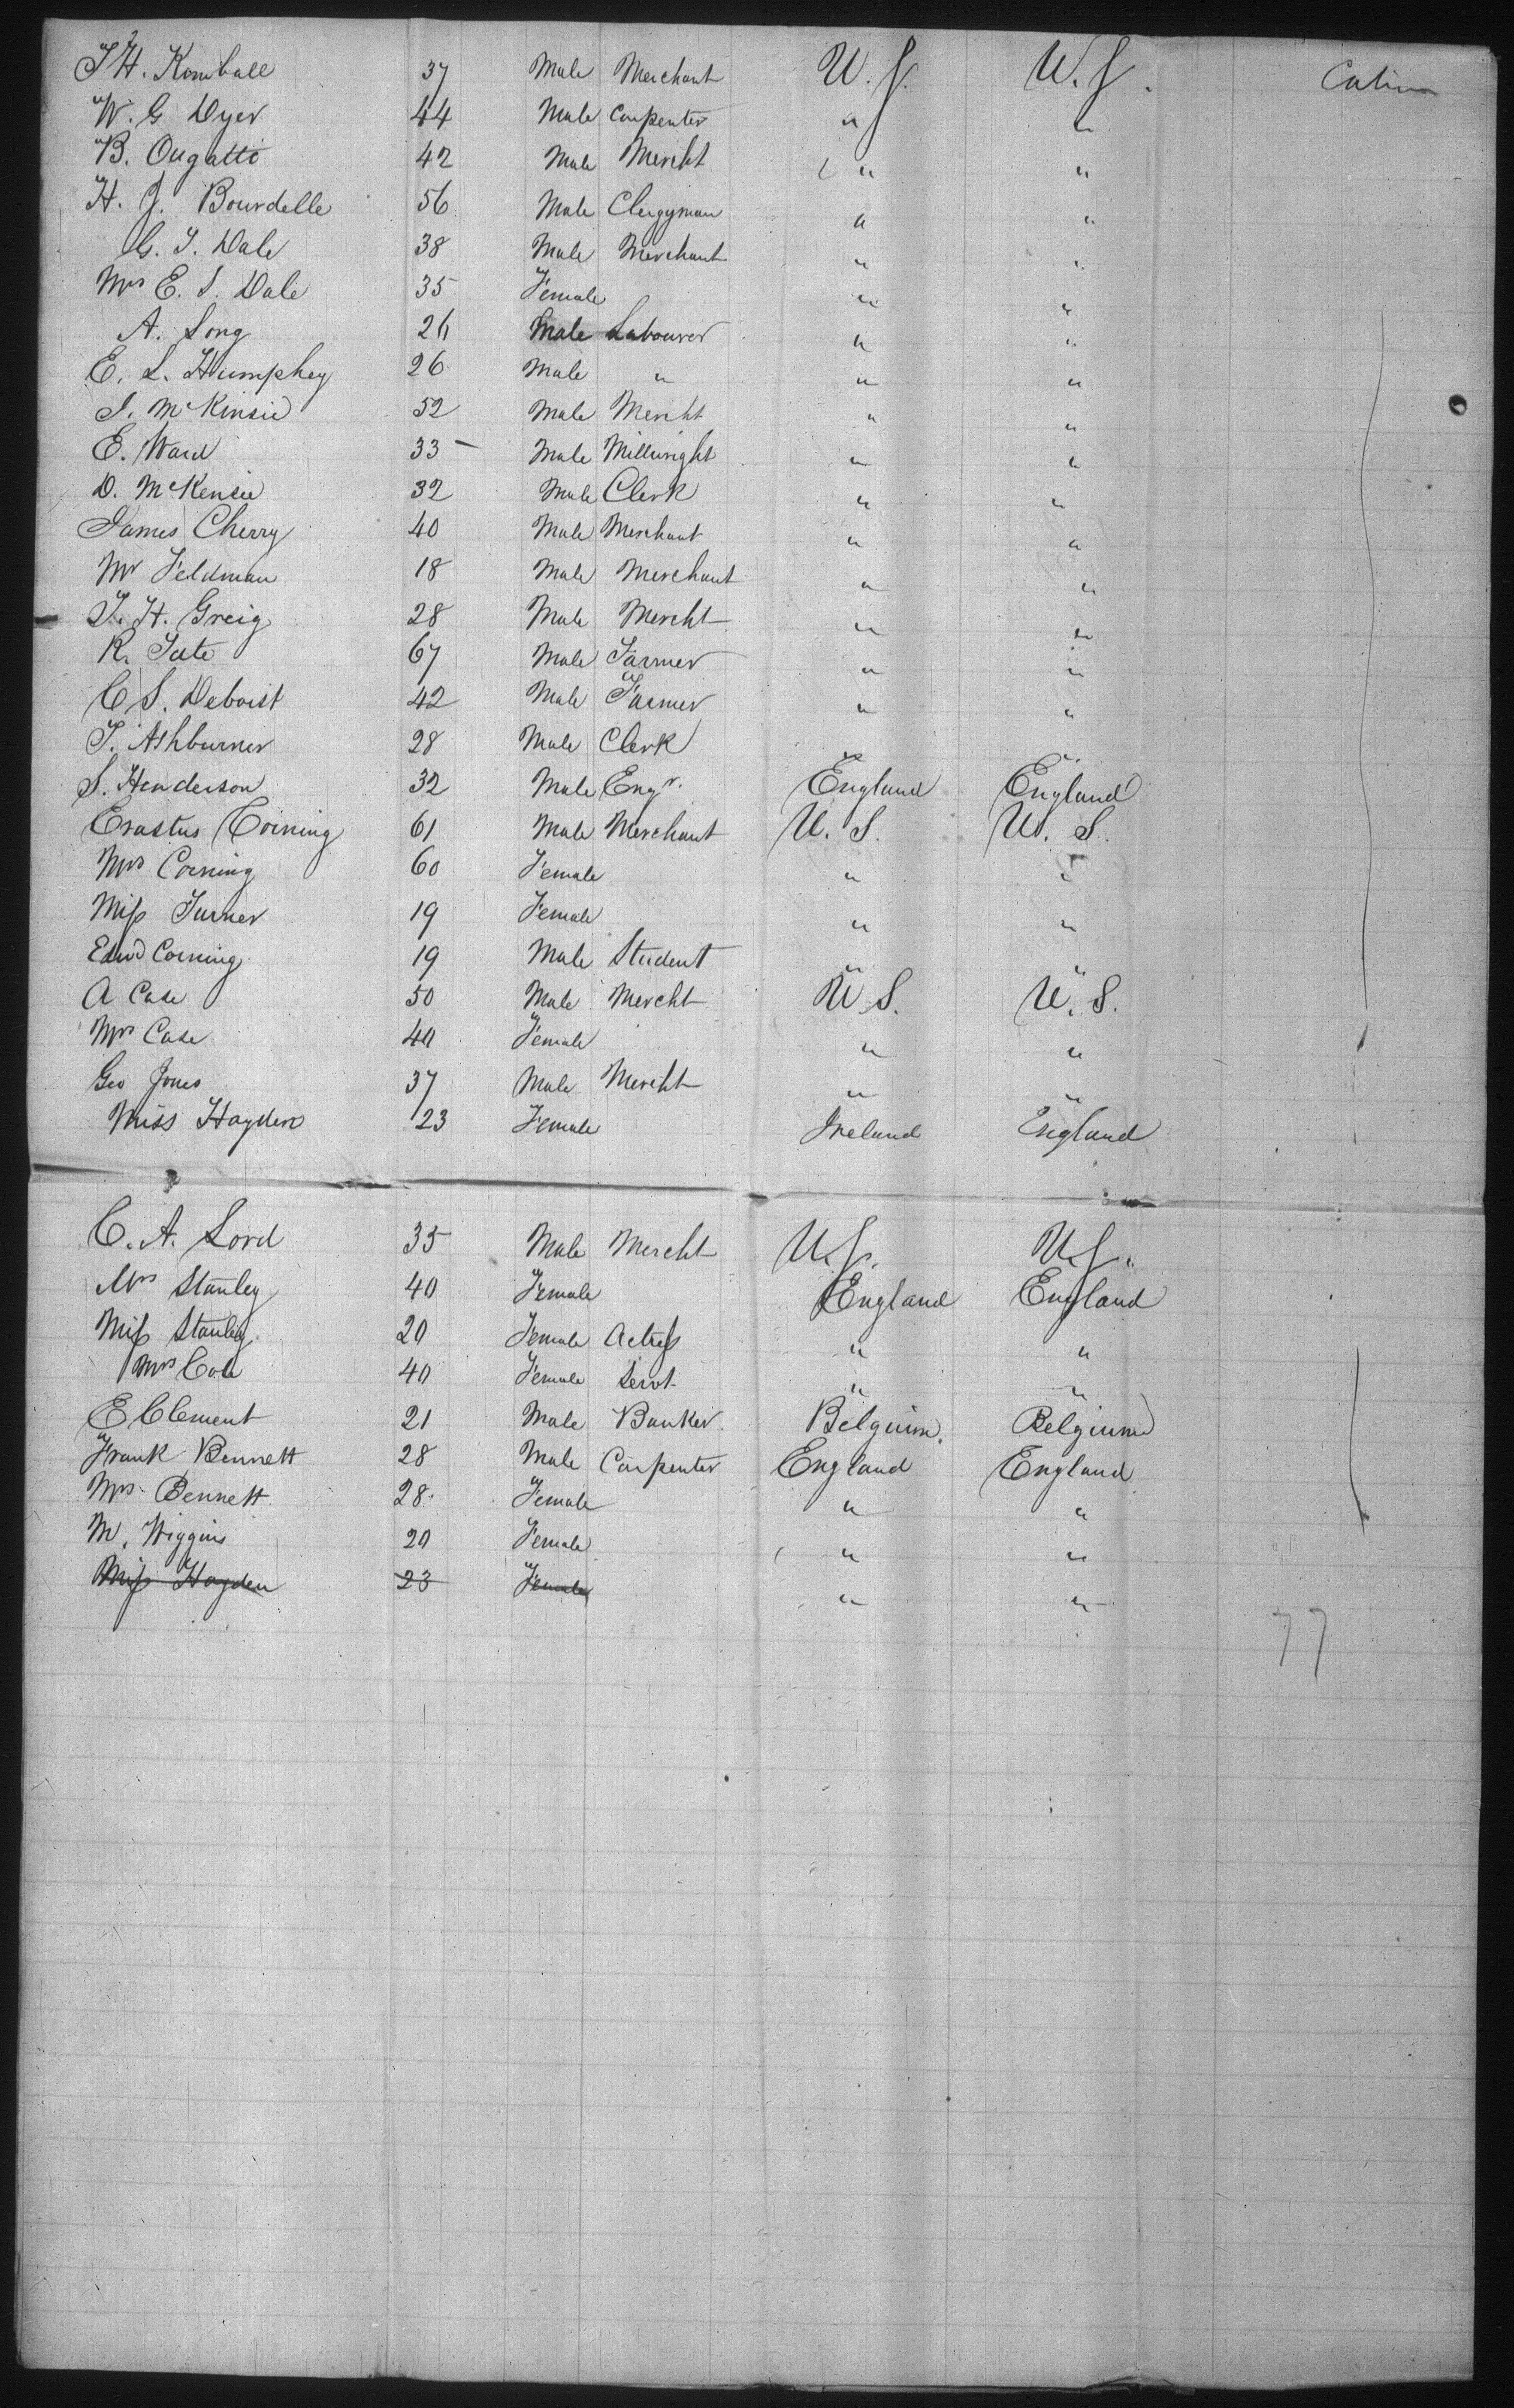 T H. Kimball 37 Male Merchant U.S. U.S. Cabin
W. G Dyer 44 Male Carpenter " "
B. Ougatte 42 Male Mercht " "
H. J. Bourdelle 56 Male Clergyman " "
G. T. Dale 38 Male Merchant " "
Mrs E. S. Dale 35 Female " "
A. Long 26 Male Labourer " "
E. L. Humphey 26 Male " " "
J. McKinsie 52 Male Mercht " "
E. Ward 33 Male Millwright " "
D. McKensie 32 Male Clerk " "
James Cherry 40 Male Merchant " "
Mr Feldman 18 Male Merchant " "
J. H. Greig 28 Male Mercht " "
R. Tate 67 Male Farmer " "
C S. Deboist 42 Male Farmer " "
T. Ashburner 28 Male Clerk " "
S. Henderson 32 Male Engr. England England
Erastus Corning 61 Male Merchant U. S. U. S.
Mrs Corning 60 Female " "
Miss Turner 19 Female " "
Edwd Corning 19 Male Student " "
A Case 50 Male Mercht U S. U. S.
Mrs Case 40 Female " "
Geo Jones 37 Male Mercht " "
Miss Hayden 23 Female Ireland England
C. A. Lord 35 Male Mercht U.S. U.S.
Mrs Stanley 40 Female England England
Miss Stanley 20 Female Actress " "
Mrs Cole 40 Female Servt " "
E Clement 21 Male Banker Belguim. Belgium
Frank Bennett 28 Male Carpenter England England
Mrs Bennett 28 Female " "
M. Wiggins 20 Female " "
Miss Hayden 23 Female " "
77